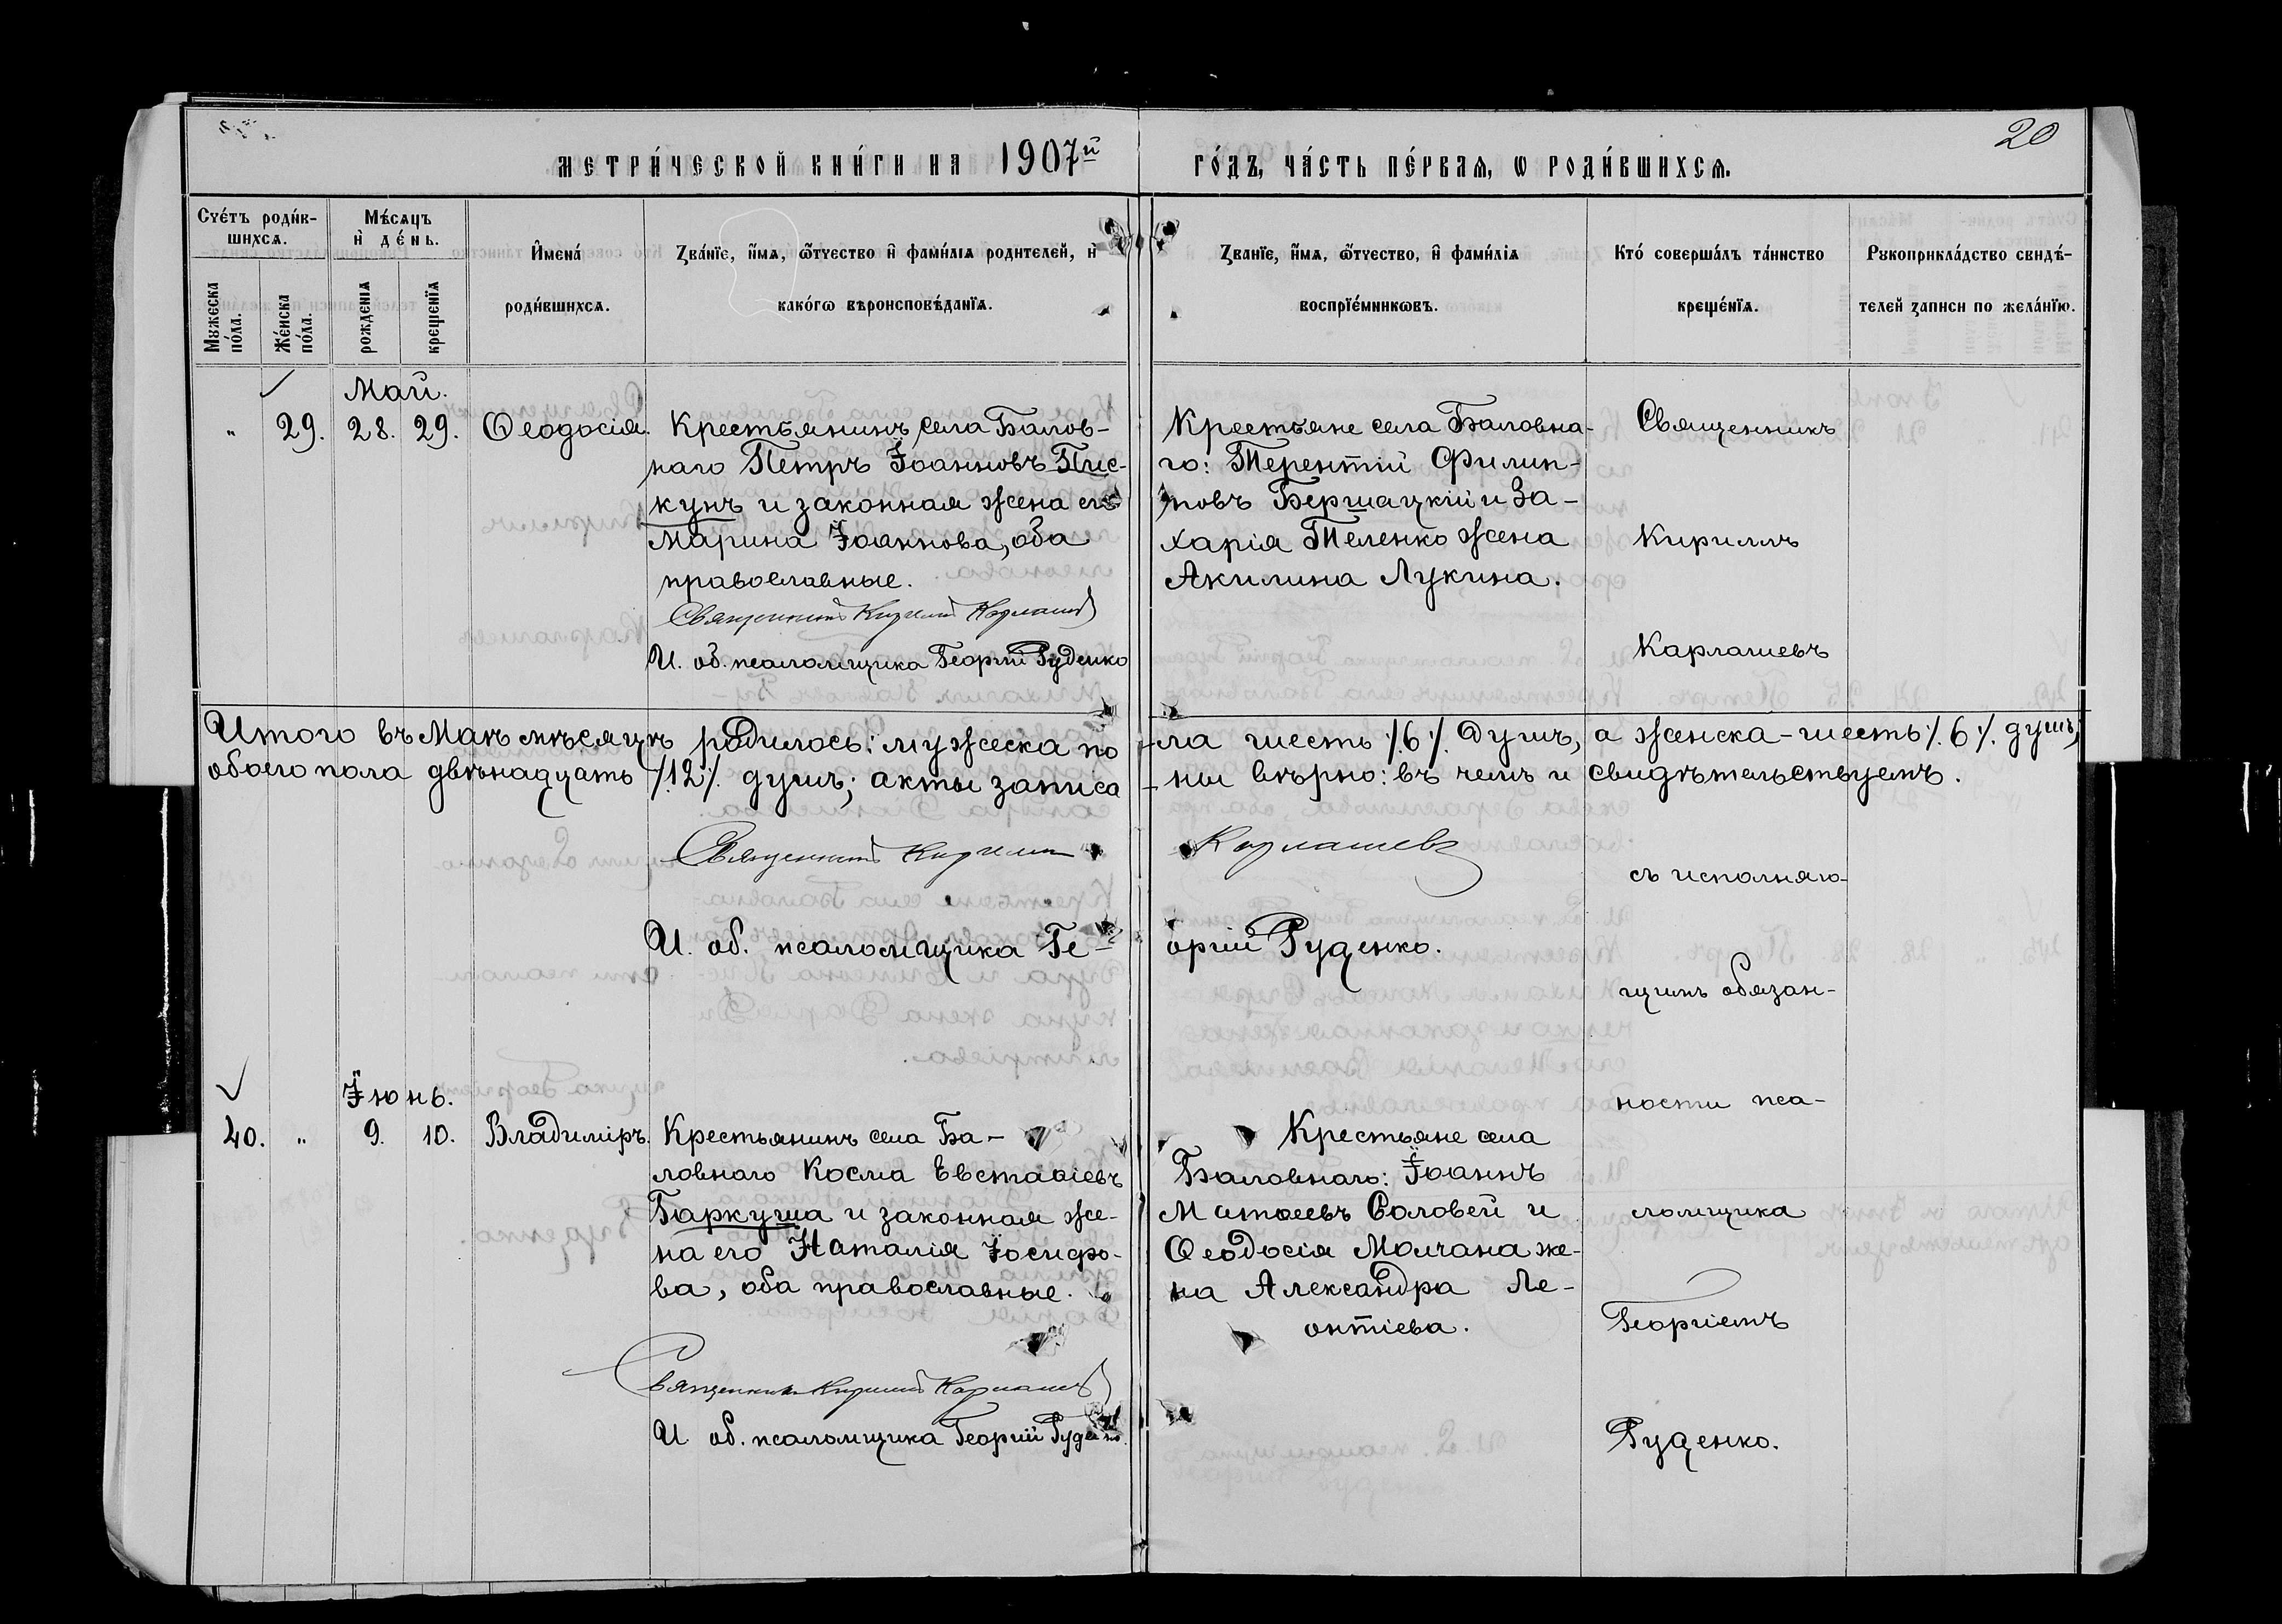 20
МЕТРИ́ЧЕСКОЙ КНИ́ГИ НА 1907й ГО́ДЪ, ЧА́СТЬ ПЕ́РВАѦ, Ѡ РОДИ́ВШИХСѦ.
Сче́тъ роди́в-
шихсѧ.
Мужеска по́ла.
Же́нска по́ла.
Мѣ́сѧцъ
и҆ де́нь.
рожденіѧ
крещенїѧ
И҆мена́
роди́вшихсѧ.
Зва́нїе, и҆́мѧ, ѻ҆́тчество и҆ фами́лїѧ родителей, и҆
како́гѡ вѣроисповѣ́данїѧ.
Зва́нїе, и҆́мѧ, ѻ҆́тчество, и҆ фами́лїѧ
воспрїе́мникѡвъ.
Кто́ соверша́лъ та́инство
креще́нїѧ.
Рукоприкла́дство свидѣ́-
телей записи по жела́нїю.
Май.
" 29. 28. 29. Ѳеодосія.
Крестьянинъ села Балов-
наго Петръ Іоанновъ Пис-
кунъ и законная жена его
Марина Іоаннова, оба
православные.
Священникъ Кириллъ Карлашевъ
И. об. псаломщика Георгій Руденко
Крестьяне села Баловна-
го: Терентій Филип-
повъ Бершацкій и За-
харія Теленко жена
Акилина Лукина.
Священникъ
Кириллъ
Карлашевъ
Итого въ Маѣ мѣсяцѣ родилось: мужеска по-
ла шесть ·/.6·/. душъ, а женска-шесть ·/.6·/. душъ,
обоего пола двѣнадцать ·/.12·/. душъ; акты записа-
ны вѣрно: въ чемъ и свидѣтельствуемъ.
Священникъ Кириллъ Карлашевъ
И. об. псаломщика Ге-
оргій Руденко.
Іюнь.
40. " 9. 10. Владиміръ.
Крестьянинъ села Ба-
ловнаго Косма Евстаѳіевъ
Баркуша и законная же-
на его Наталія Іосифо-
ва, оба православные.
Священникъ Кириллъ Карлашевъ
И об. псаломщика Георгій Руденко.
Крестьяне села
Баловнаго: Іоаннъ
Матѳеевъ Соловей и
Ѳеодосія Молчана же-
на Александра Ле-
онтіева.
съ исполняю-
щимъ обязан-
ности пса-
ломщика
Георгіемъ
Руденко.